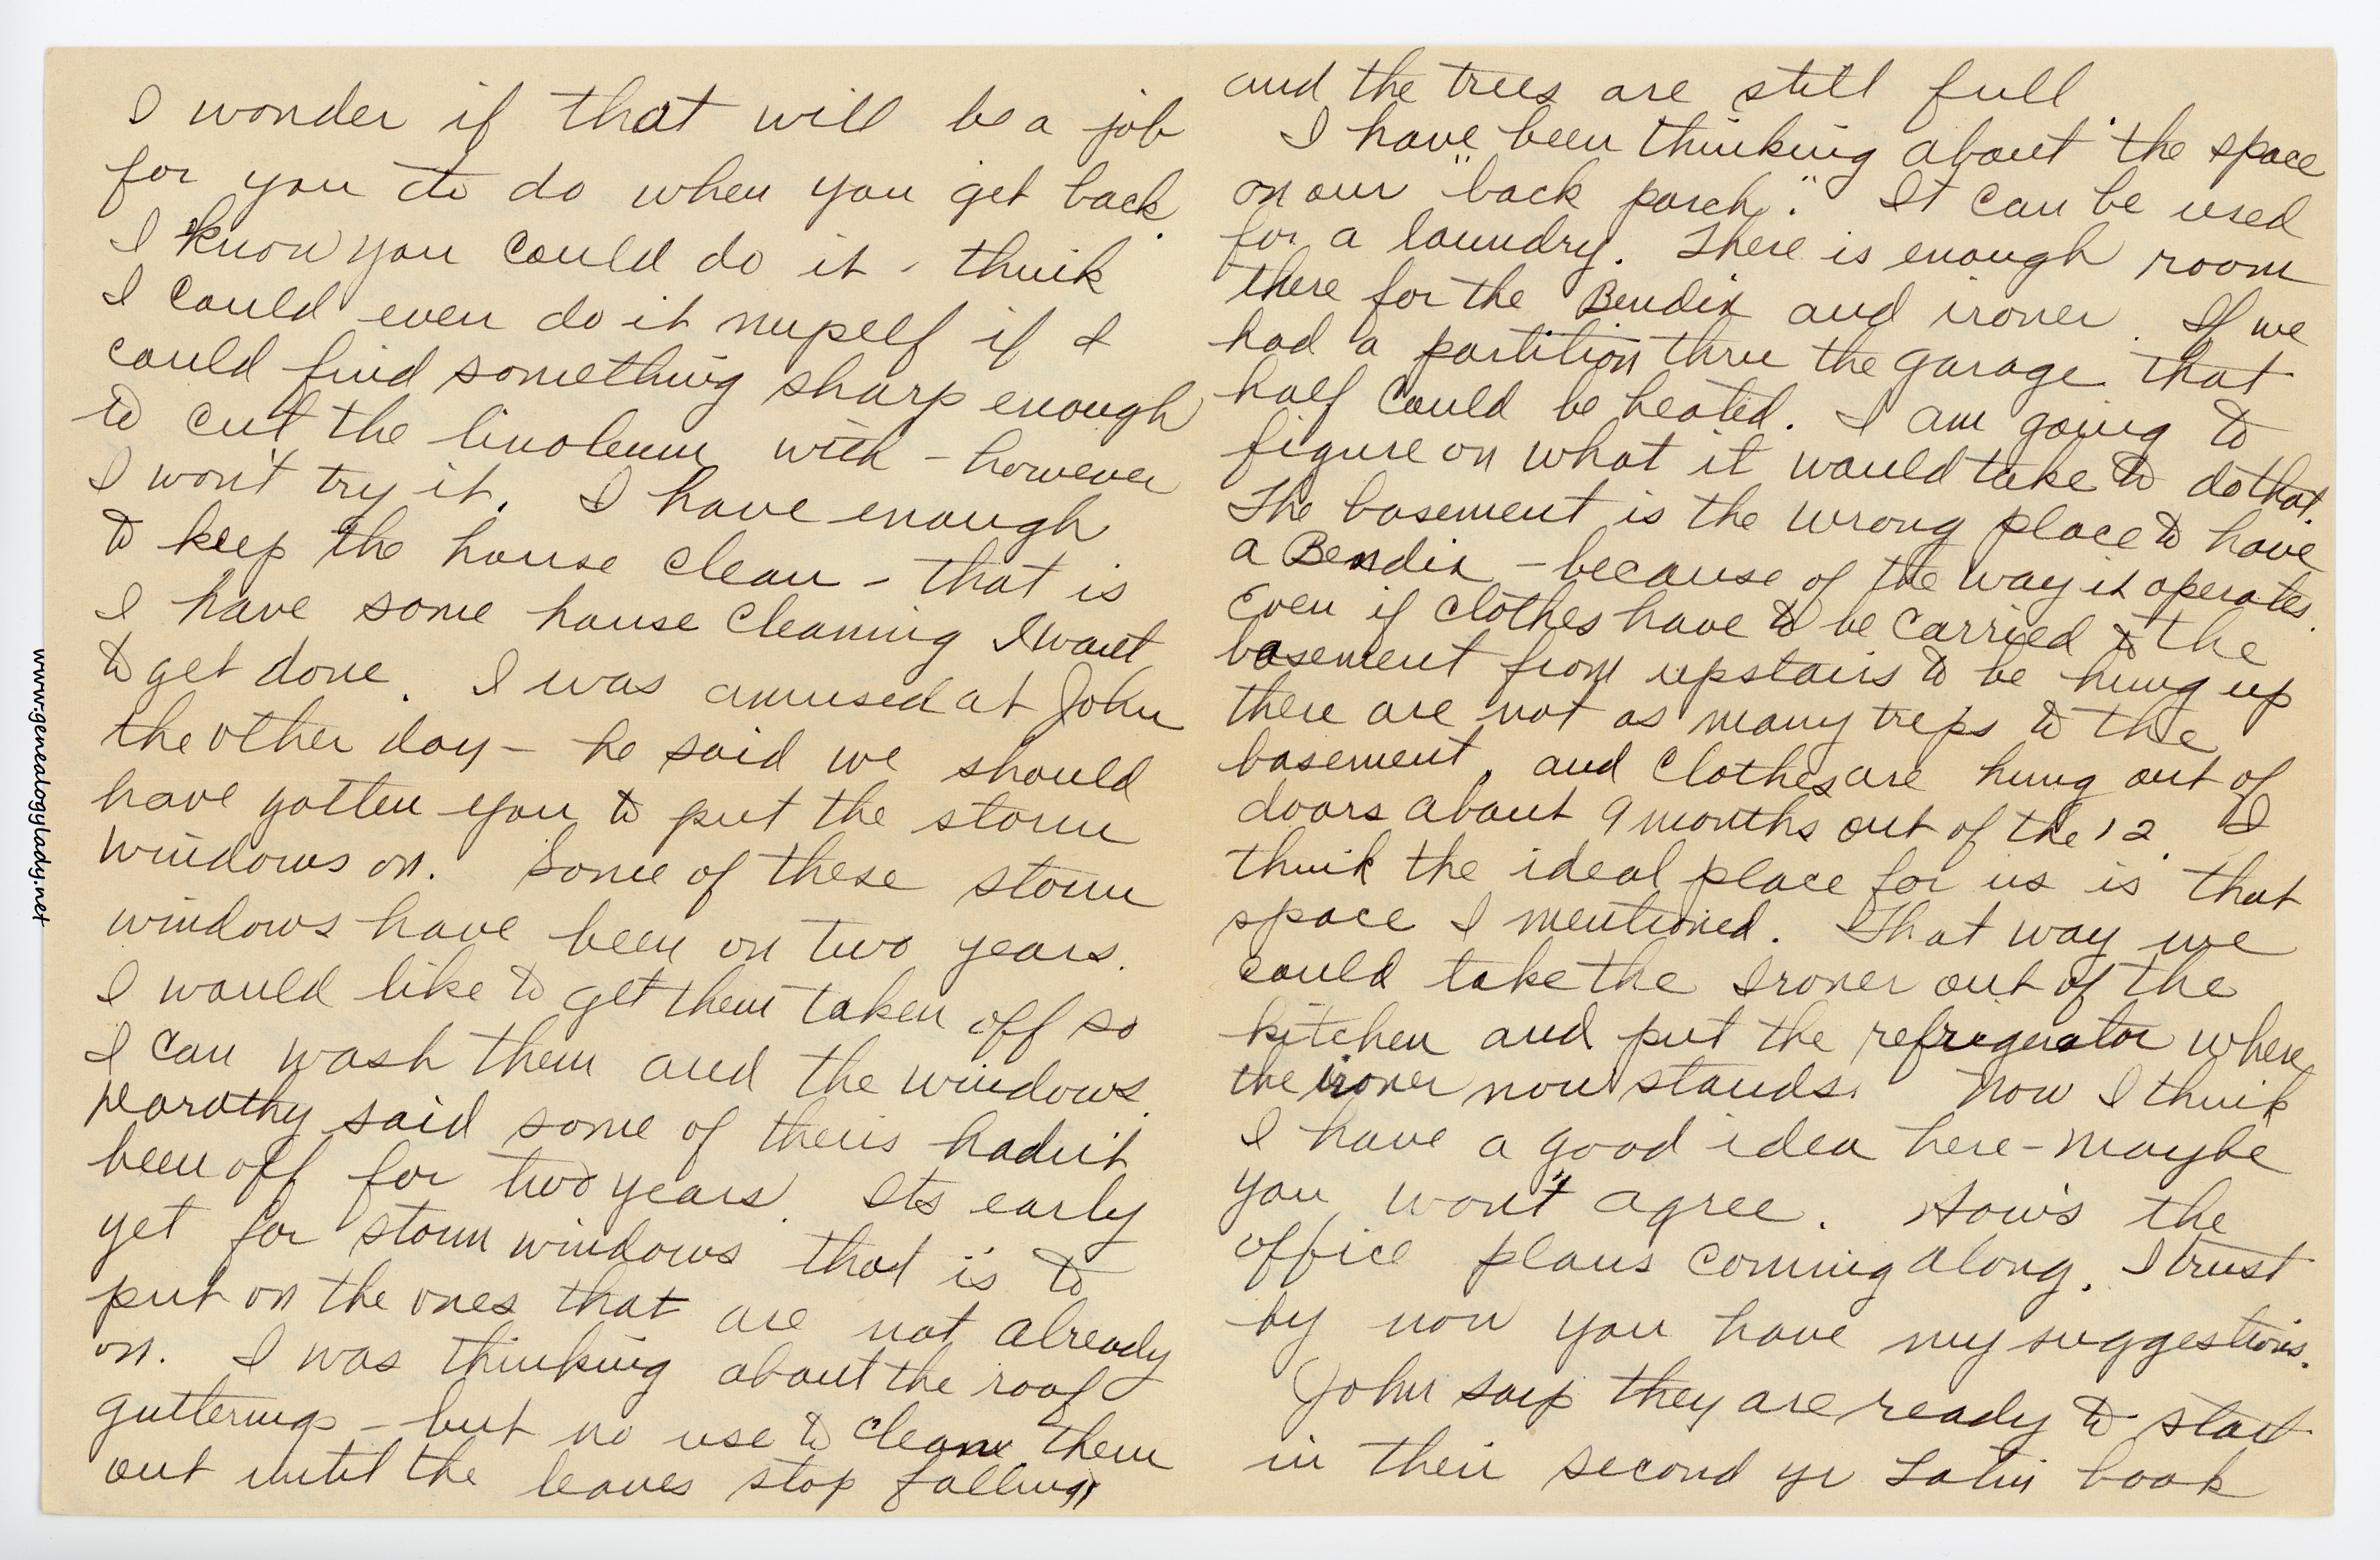 I wonder if that will be a job
for you to do when you get back.
I know you could do it - think
I could even do it myself if I
could find something sharp enough
to cut the linoleum with - however
I won't try it. I have enough
to keep the house clean - that is
I have some house cleaning I want
to get done. I was amused at John
the other day - he said we should
have gotten you to put the storm
windows on. Some of these storm
windows have been on two years.
I would like to get them taken off so
I can wash them and the windows.
Dorothy said some of theirs hadn't
been off for two years. Its early
yet for storm windows that is to
put on the ones that are not already
on. I was thinking about the roof
gutterings - but no use to clean them
out until the leaves stop falling
and the trees are still full
I have been thinking about the space
on our "back porch." It can be used
for a laundry. There is enough room
there for the Bendix and ironer. If we
had a partition thru the garage that
half could be heated. I am going to
figure on what it would take to do that.
The basement is the wrong place to have
a Bendix - because of the way it operates.
Even if clothes have to be carried to the
basement from upstairs to be hung up
there are not as many trips to the
basement, and clothes are hung out of
doors about 9 months out of the 12. I
think the ideal place for us is that
space I mentioned. That way we
could take the Ironer out of the
kitchen and put the refrigerator where
the ironer now stands. Now I think
I have a good idea here - maybe
you won't agree. How's the
office plans coming along. I trust
by now you have my suggestions.
John says they are ready to start
in their second yr Latin book
www.genealogylady.net